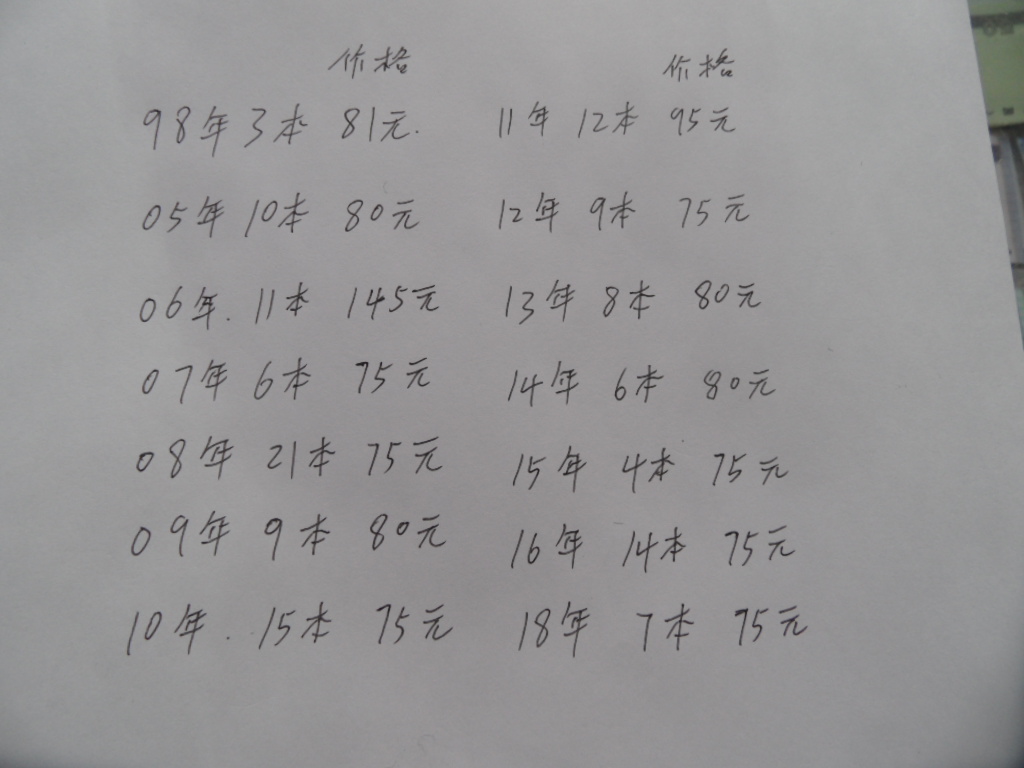 价格 价格
98年 3本 81元. 11年 12本 95元
05年 10本 80元 12年 9本 75元
06年. 11本 145元 13年 8本 80元
07年 6本 75元 14年 6本 80元
08年 21本 75元 15年 4本 75元
09年 9本 80元 16年 14本 75元
10年. 15本 75元 18年 7本 75元